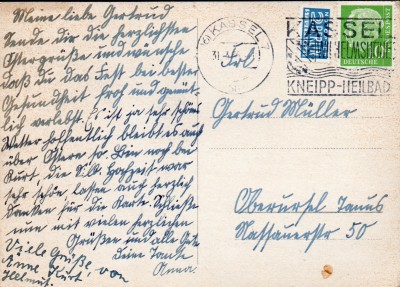 Meine liebe Gertrud
Sende dir die herzlichsten
Ostergrüße und wünsche
daß du das Fest bei bester
Gesundheit froh und gemüt-
lich verlebst. Es ist ja sehr schönes
Wetter hoffentlich bleibt es auch
über Ostern so. Bin noch bei
Kurt, die S.G. Hochzeit war
sehr schön, lassen auch herzlich
danken für die Karte. Schließe
nun mit vielen herzlichen
Grüßen und alle Gute
Deine Tante
Anna.
Viele Grüße von
Anne, Kurt,
Helmut.
KASSEL 7
KASSEL
WILHELMSHÖHE
KNEIPP-HEILBAD
NOTOPFER
BERLIN
DEUTSCHE
Gertrud Müller
Oberursel Taunus
Nassauerstr 50